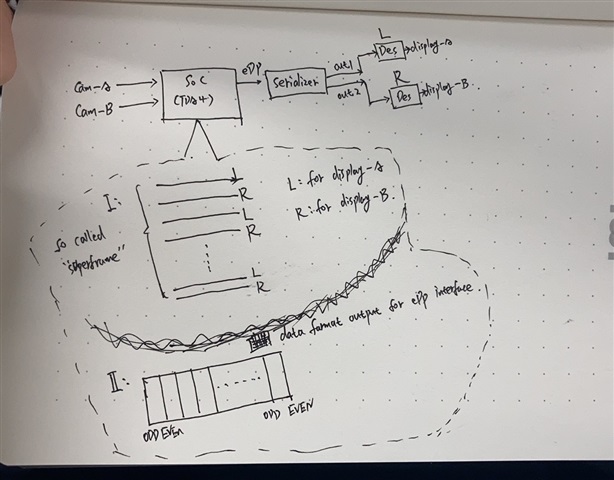 Cam-A
Cam-B
SoC
(TDA4)
eDP
Serializer
out1
out2
L
Des
display-A
R
Des
display-B.
I:
L
R
L
R
L
R
L: for display-A
R: for display-B.
so called
"superframe"
data format output for eDP interface
II:
ODD EVEN
ODD EVEN